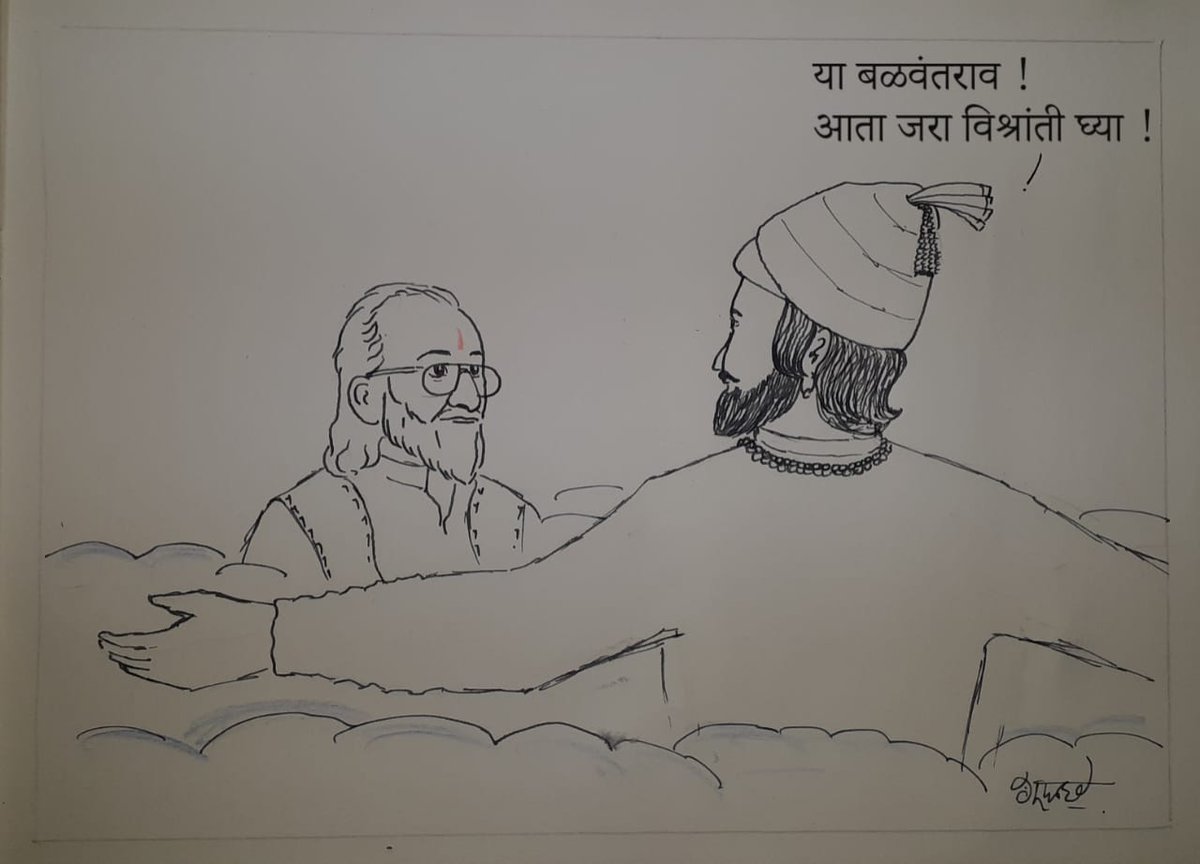 या बळवंतराव !
आता जरा विश्रांती घ्या !